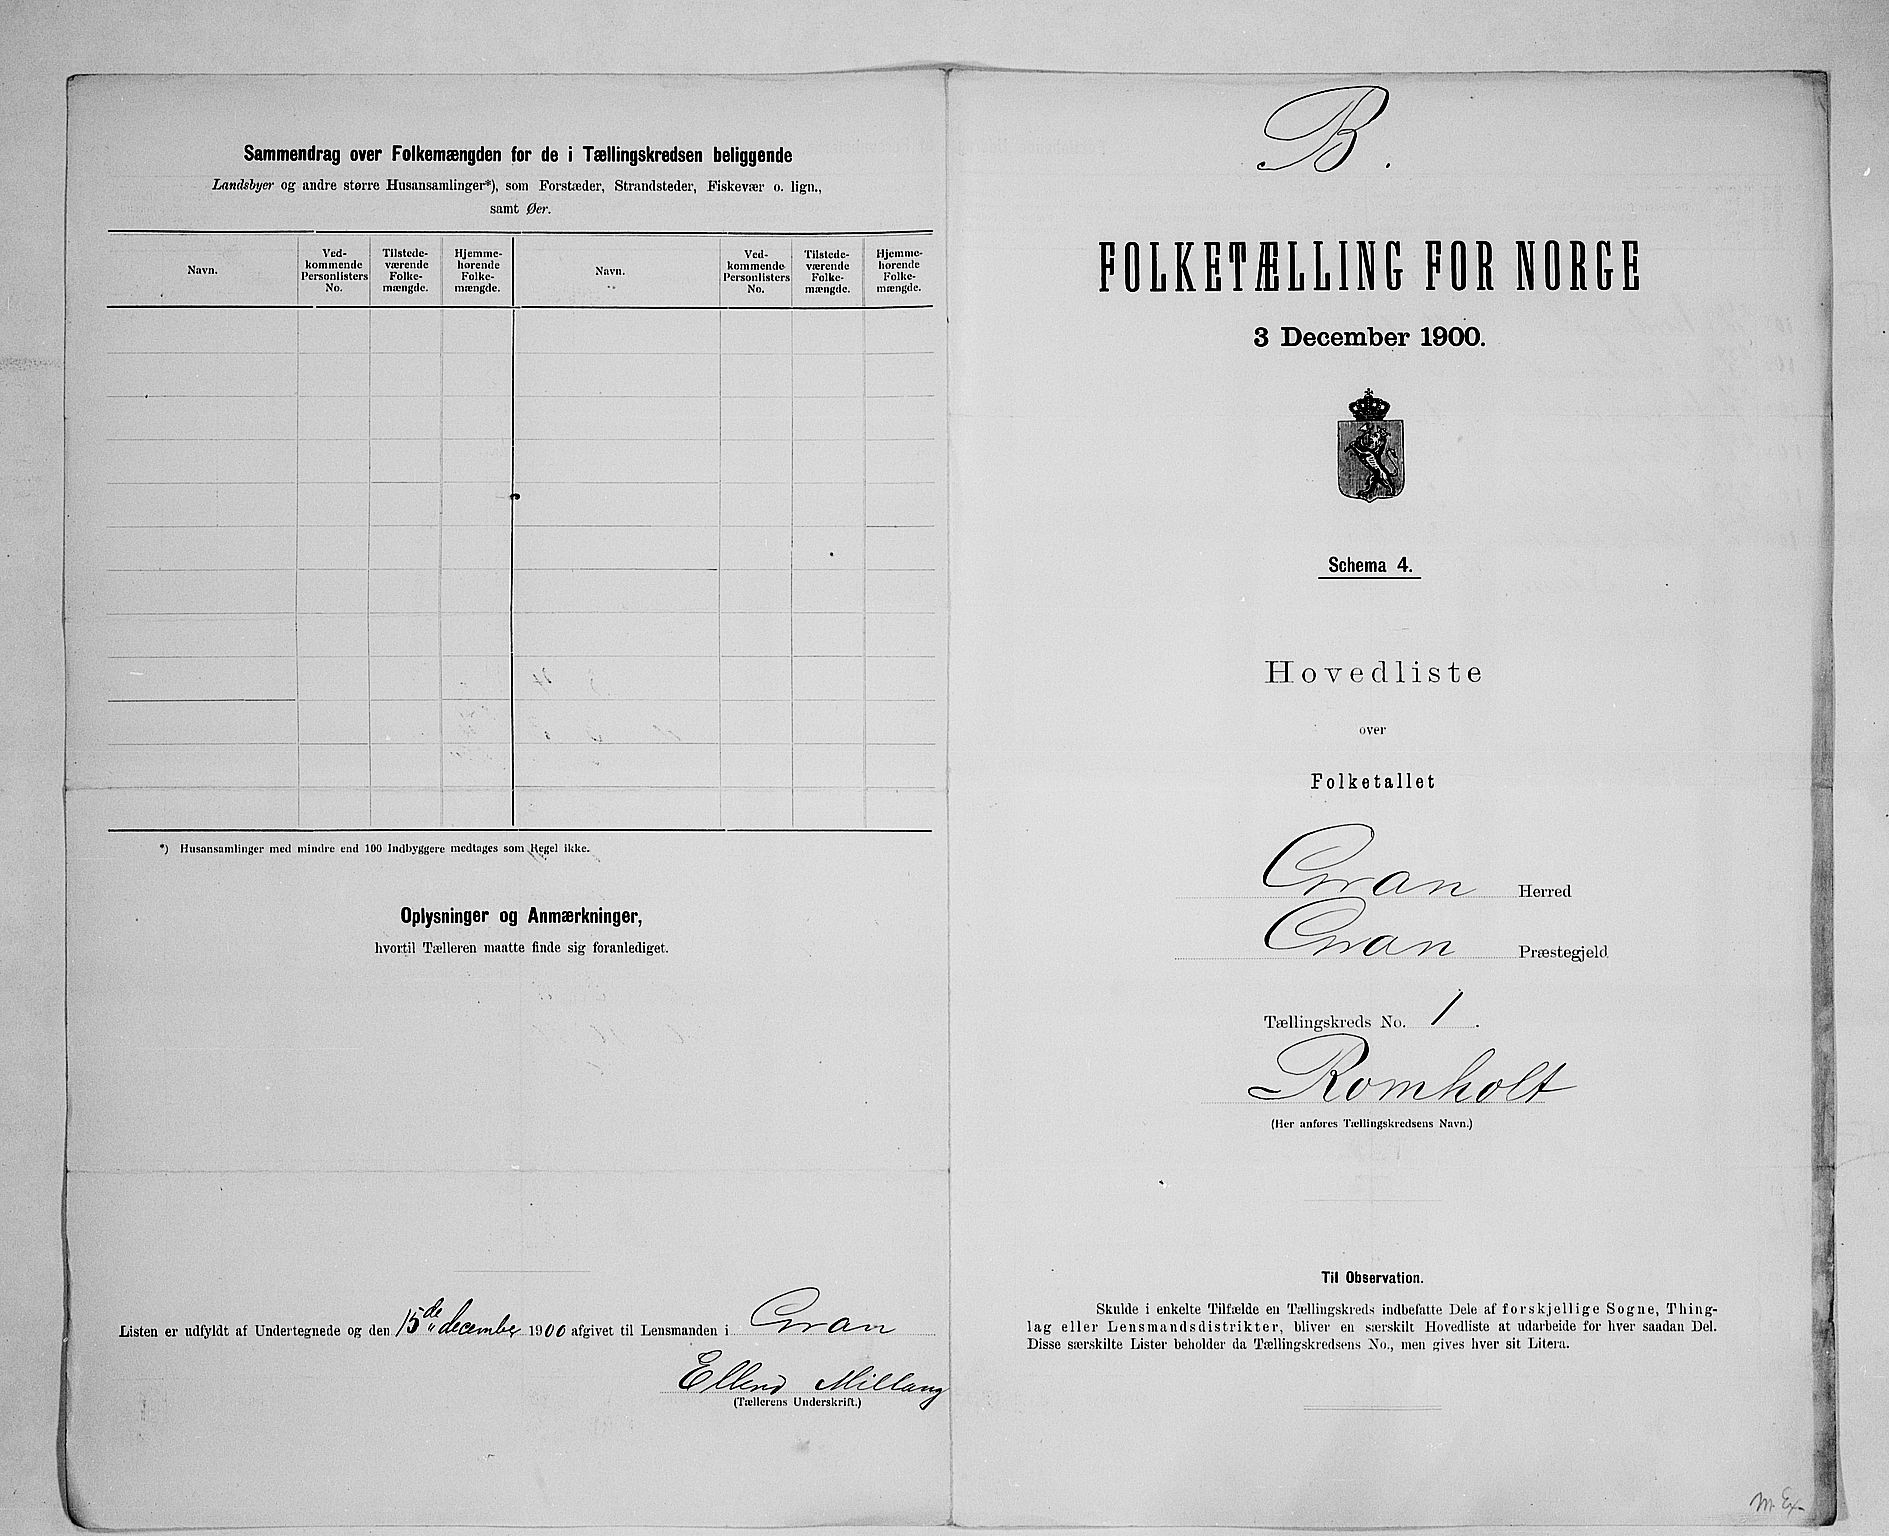 Sammendrag over Folkemængden for de i Tællingskredsen beliggende
Landsbyer og andre større Husansamlinger*), som Forstæder, Strandsteder, Fiskevær o. lign.,
samt Øer.
Navn.
Ved-
kommende
Personlisters
No.
Tilstede-
værende
Folke-
mængde.
Hjemme-
hørende
Folke-
mængde.
Navn.
Ved-
kommende
Personlisters
No.
Tilstede-
værende
Folke-
mængde.
Hjemme-
hørende
Folke-
mængde.
*) Husansamlinger med mindre end 100 Indbyggere medtages som Regel ikke.
Oplysninger og Anmærkninger,
hvortil Tælleren maatte finde sig foranlediget.
Listen er udfyldt af Undertegnede og den 15de december 1900 afgivet til Lensmanden i Gran
Ellend Millang
(Tællerens Underskrift.)
B.
FOLKETÆLLING FOR NORGE
3 December 1900.
Schema 4.
Hovedliste
over
Folketallet
Gran Herred
Gran Præstegjeld
Tællingskreds No. 1.
Romholt
(Her anføres Tællingskredsens Navn.)
Til Observation.
Skulde i enkelte Tilfælde en Tællingskreds indbefatte Dele af forskjellige Sogne, Thing-
lag eller Lensmandsdistrikter, bliver en særskilt Hovedliste at udarbeide for hver saadan Del.
Disse særskilte Lister beholder da Tællingskredsens No., men gives hver sit Litera.
M. Ex.